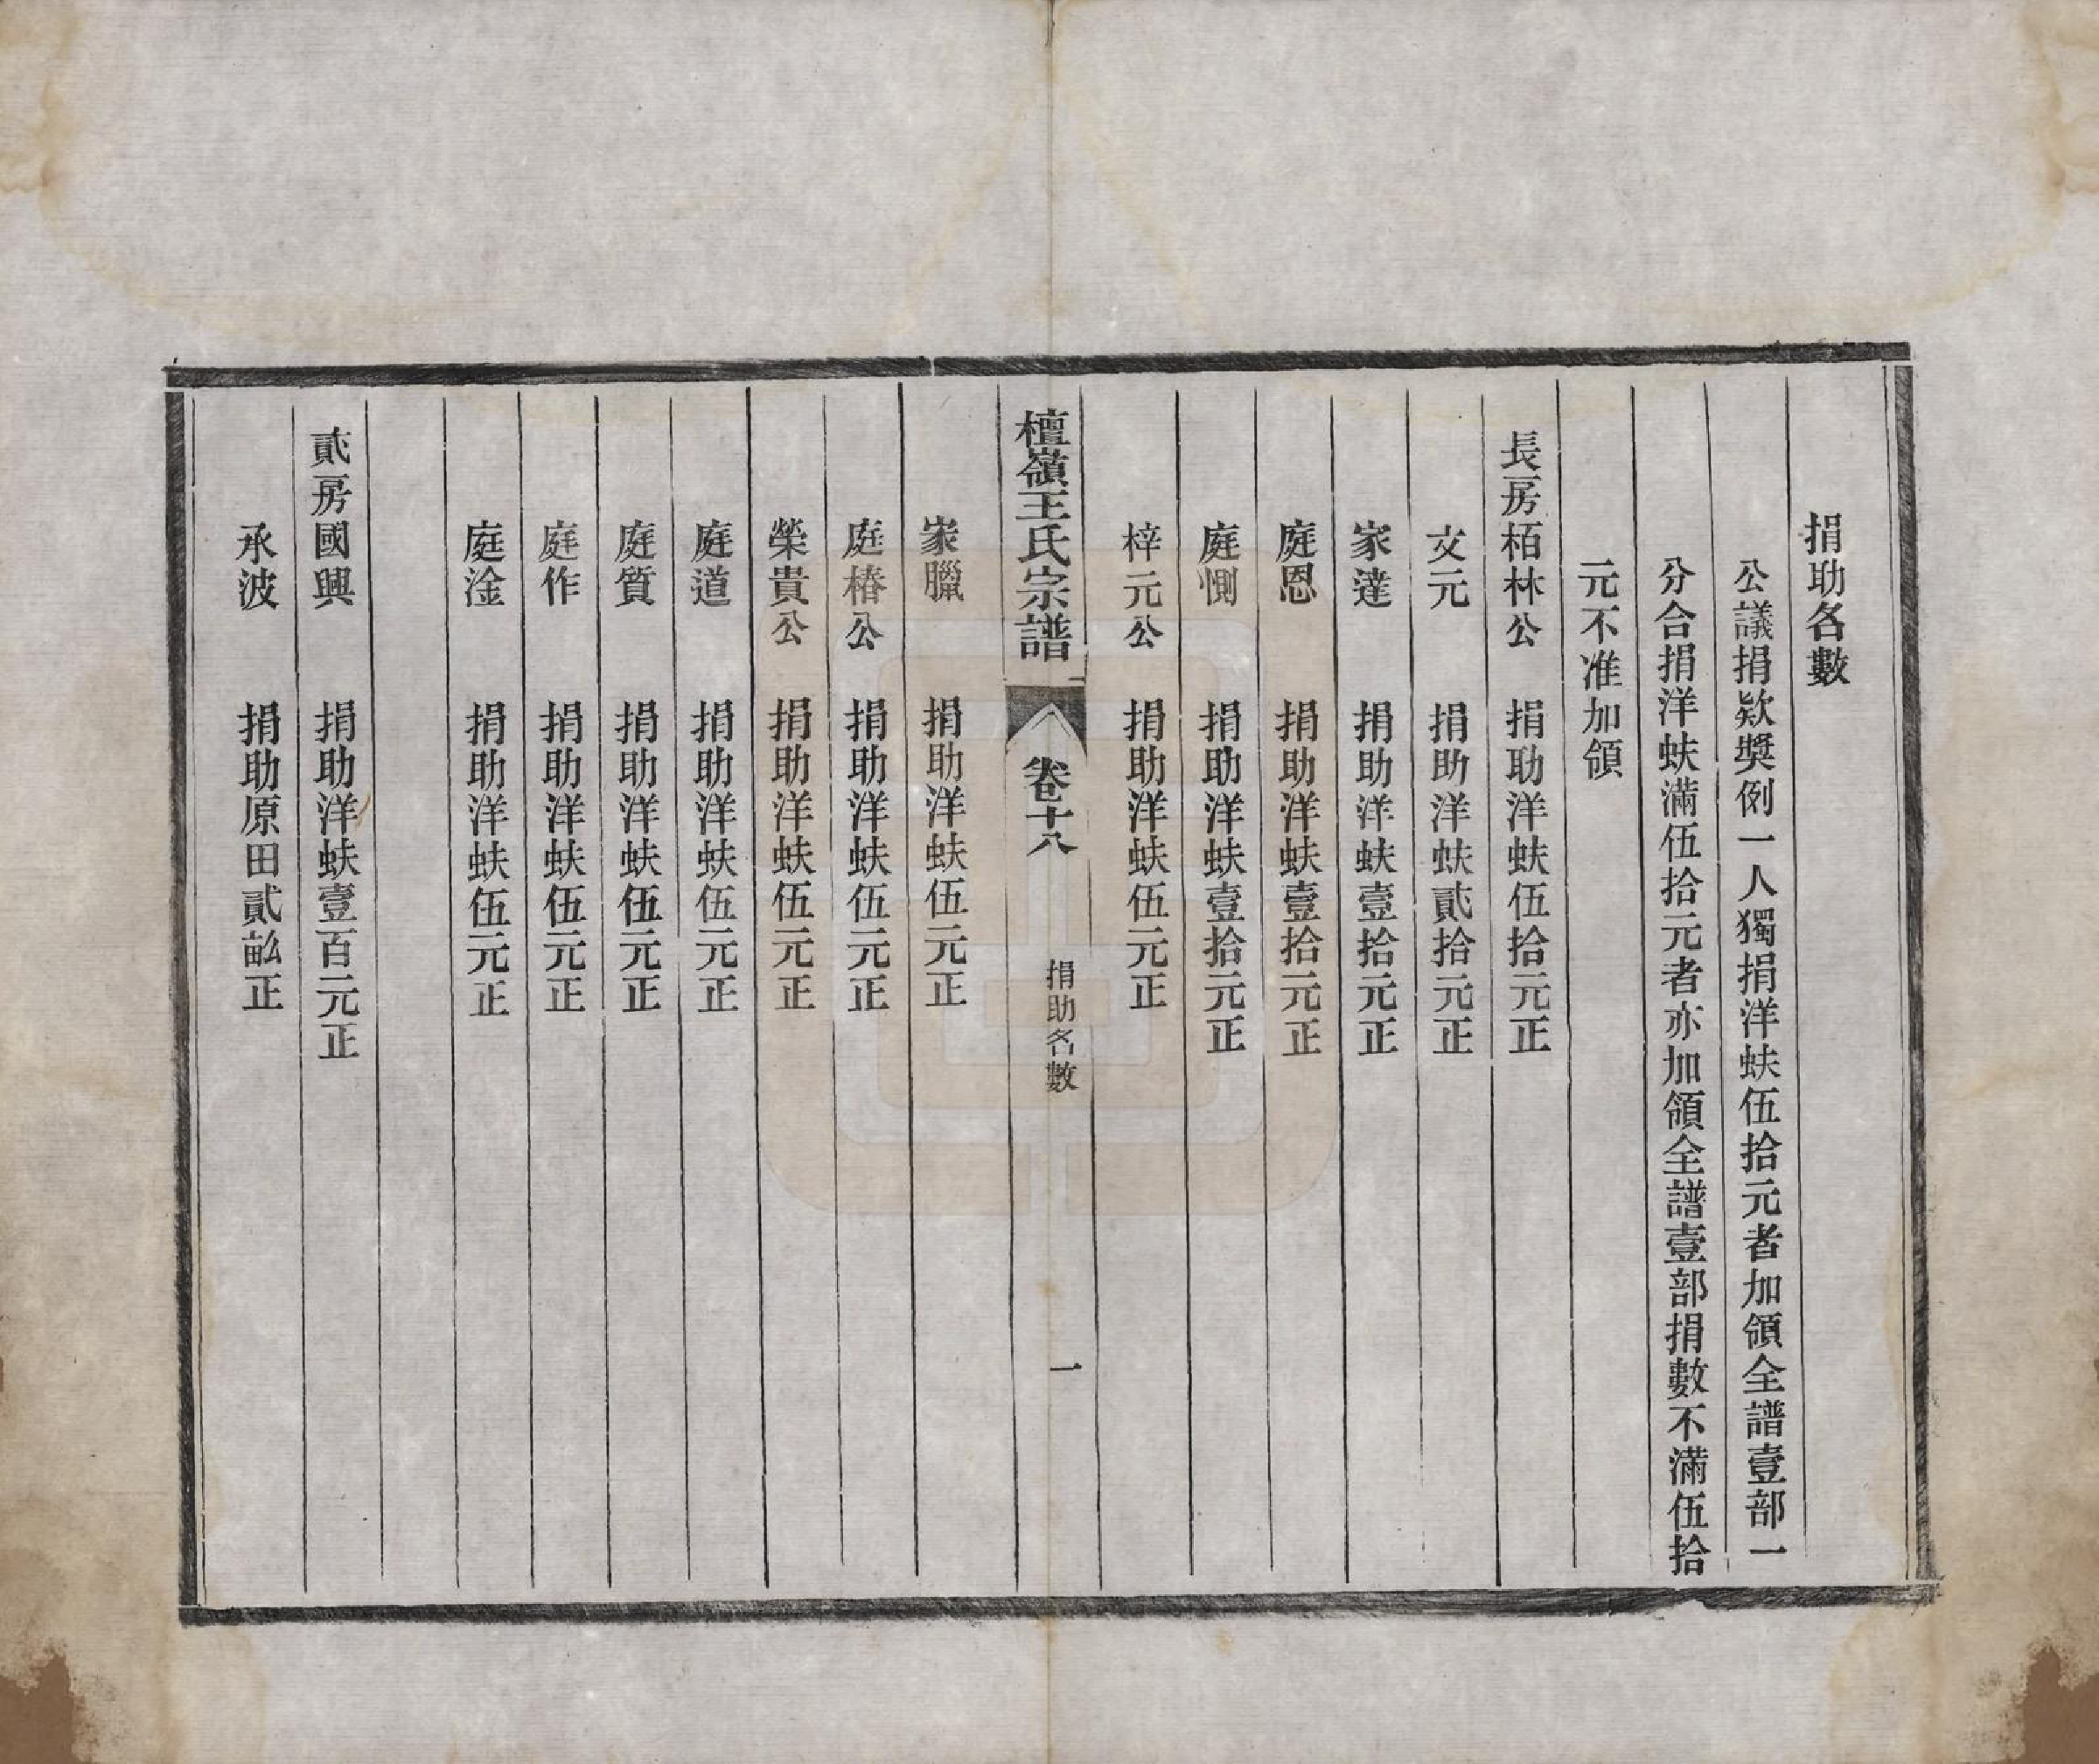 捐助名數
公議捐欵獎例一人獨捐洋蚨伍拾元者加領全譜壹部一
分合捐洋蚨滿伍拾元者亦加領全譜壹部捐數不滿伍拾
元不准加領
長房栢林公　捐助洋蚨伍拾元正
文元　捐助洋蚨貳拾元正
家達　捐助洋蚨壹拾元正
庭恩　捐助洋蚨壹拾元正
庭惻　捐助洋蚨壹拾元正
梓元公　捐助洋蚨伍元正
檀嶺王氏宗譜　卷十八　捐助名數　一
家臘　捐助洋蚨伍元正
庭椿公　捐助洋蚨伍元正
榮貴公　捐助洋蚨伍元正
庭道　捐助洋蚨伍元正
庭質　捐助洋蚨伍元正
庭作　捐助洋蚨伍元正
庭淦　捐助洋蚨伍元正
貳房國興　捐助洋蚨壹百元正
承波　捐助原田貳畝正